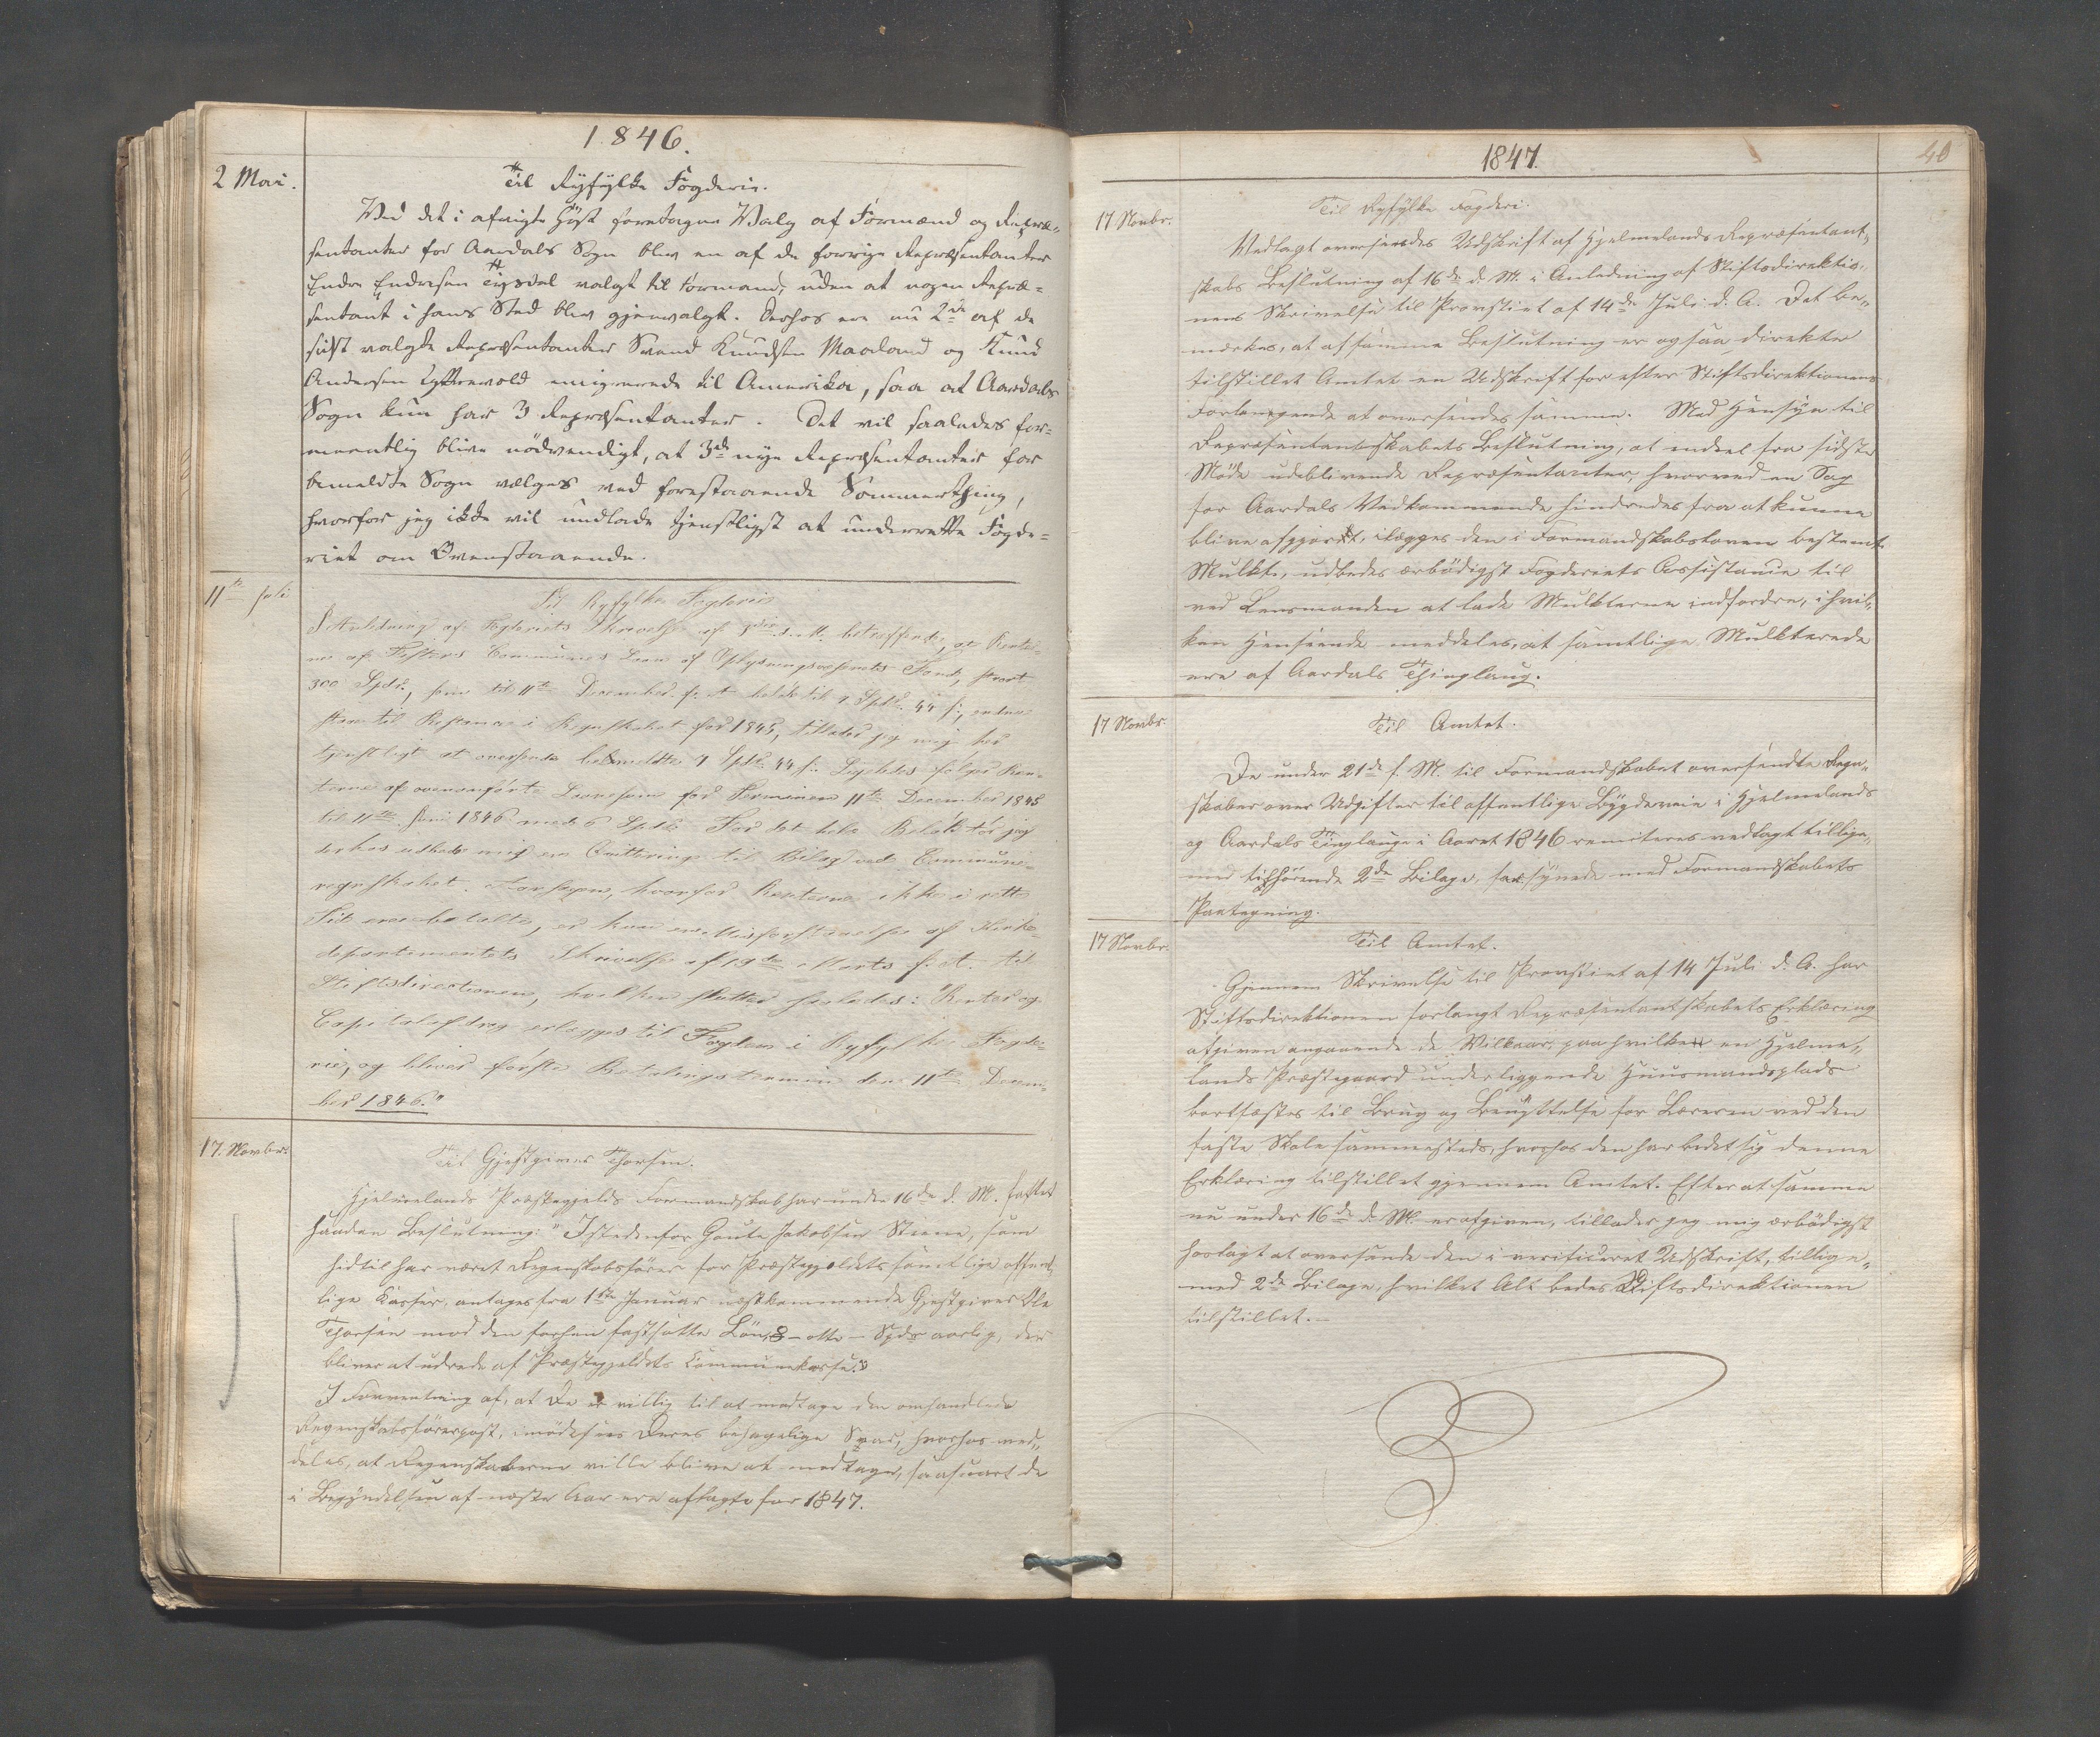 1846.
2 Mai.
Til Ryfylke Fogderie.
Ved det i afvigte Høst foretagne Valg af Formænd og Repræ-
sentanter for Aardals Sogn blev en af de forrige Repræsentanter
Endre Endresen Tysdal valgt til Formand, uden at nogen Repræ-
sentant i hans Sted blev gjenvalgt. Derhos ere nu 2de af de
sidst valgte Repræsentanter Svend Knudsen Maaland og Knud
Andersen emigrerede til Amerika, saa at Aardals
Sogn kun har 3 Repræsentanter. Det vil saaledes for-
meentlig blive nödvendigt, at 3de nye Repræsentanter for
bemeldte Sogn vælges ved forestaaende Sommerthing,
hvorfor jeg ikke vil undlade tjenstligst at underrette Fogde-
riet om Ovenstaaende.
11te Juli
Til Ryfylke Fogderie
I Anledning af Fogderiets Skrivelse af d. M. betreffende, at Rente-
ne af Fisters Communes Laan af Oplysningsvæsenets Fond, stort
300 Spdr., som til 11te December f. A. beløb til 9 Spdr. 44 s.,
staae til Restance i Regnskabet for 1845, tillader jeg mig her
tjenstligst at oversende bemeldte 9 Spdr. 44 s. Ligeledes følger Ren-
terne af ovenanførte Laanesum for Terminen 11te December 1845
til 11te Juni 1846 med 6 Spdr. For det hele Beløb tør jeg
derhos udbede mig en Qvittering til Bilag ved Commune-
regnskabet. Aarsagen, hvorfor Renterne ikke i rette
Tid ere betalte, er kun en Misforstaaelse af Kirke-
departementets Skrivelse af 19de Marts f. A. til
Stiftsdirectionen, hvilken slutter saaledes: "Renter og
Capitalafdrag erlægges til Fogden i Ryfylke Fogde-
rie, og bliver første Betalingstermin den 11te Decem-
ber 1846."
17. Novbr.
Til Gjestgiver Thorsen.
Hjelmelands Præstegjelds Formandskab har under 16de d. M. fattet
saadan Beslutning: "Istedenfor Gaute Jakobsen Steene, som
hidtil har været Regnskabsfører for Præstegjeldets samtlige offent-
lige Kasser, antages fra 1ste Januar næstkommende Gjestgiver Ole
Thorsen mod den forhen fastsatte Løn, 8 - otte - Spdr aarlig, der
bliver at udrede af Præstegjeldets Communekasse."
I Forventning af, at De er villig til at modtage den omhandlede
Regnskabsførerpost, imødesees Deres behagelige Svar, hvorhos med-
deles, at Regnskaberne ville blive at modtage, saasnart de
i Begyndelsen af næste Aar ere aflagte for 1847.
1847.
40
17 Novbr.
Til Ryfylke Fogderi.
Vedlagt oversendes Udskrift af Hjelmelands Repræsentant-
skabs Beslutning af 16de d. M. i Anledning af Stiftsdirektio-
nens Skrivelse til Provstiet af 14de Juli d. A. Det be-
mærkes, at af samme Beslutning er ogsaa direkte
tilstillet Amtet en Udskrift for efter Stiftsdirektionens
Forlangende at oversendes samme. Med Hensyn til
Repræsentantskabets Beslutning, at endeel fra sidste
Møde udeblivende Repræsentanter, hvorved en Sag
for Aardals Vedkommende hindredes fra at kunne
blive afgjort, ilægges den i Formandskabsloven bestemte
Mulkt, udbedes ærbödigst Fogderiets Assistance til
ved Lensmanden at lade Mulkterne indfordre, i hvil-
ken Henseende meddeles, at samtlige Mulkterede
ere af Aardals Thinglaug.
17 Novbr.
Til Amtet.
De under 21de f. M. til Formandskabet oversendte Regn-
skaber over Udgifter til offentlige Bygdeveie i Hjelmelands
og Aardals Tinglauge i Aaret 1846 remitteres vedlagt tillige-
med tilhørende 2de Bilage, forsynede med Formandskabets
Paategning.
17 Novbr.
Til Amtet.
Gjennem Skrivelse til Provstiet af 14 Juli d. A. har
Stiftsdirektionen forlangt Repræsentantskabets Erklæring
afgiven angaaende de Vilkaar, paa hvilke en Hjelme-
lands Præstegaard underliggende Huusmandsplads
bortfæstes til Brug og Benyttelse for Læreren ved den
faste Skole sammesteds, hvorhos den har bedet sig denne
Erklæring tilstillet gjennem Amtet. Efterat samme
nu under 16de d. M. er afgiven, tillader jeg mig ærbödigst
hoslagt at oversende den i verificeret Udskrift, tillige-
med 2de Bilage, hvilket Alt bedes Stiftsdirektionen
tilstillet.-